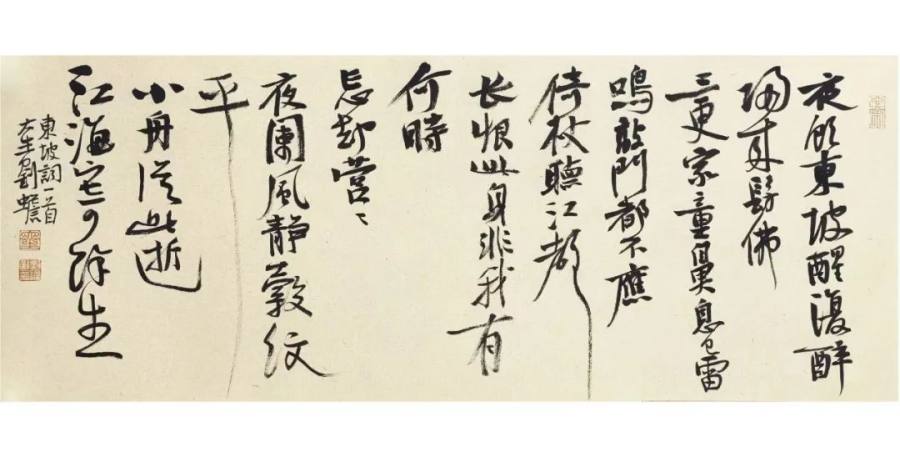 夜飲東坡醒復醉
歸来髣佛
三更家童鼻息已雷
鳴敲門都不應
倚杖聽江聲
长恨此身非我有
何時
忘却营〻
夜闌風静縠紋
平
小舟從此逝
江海寄餘生
東坡詞一首
劉